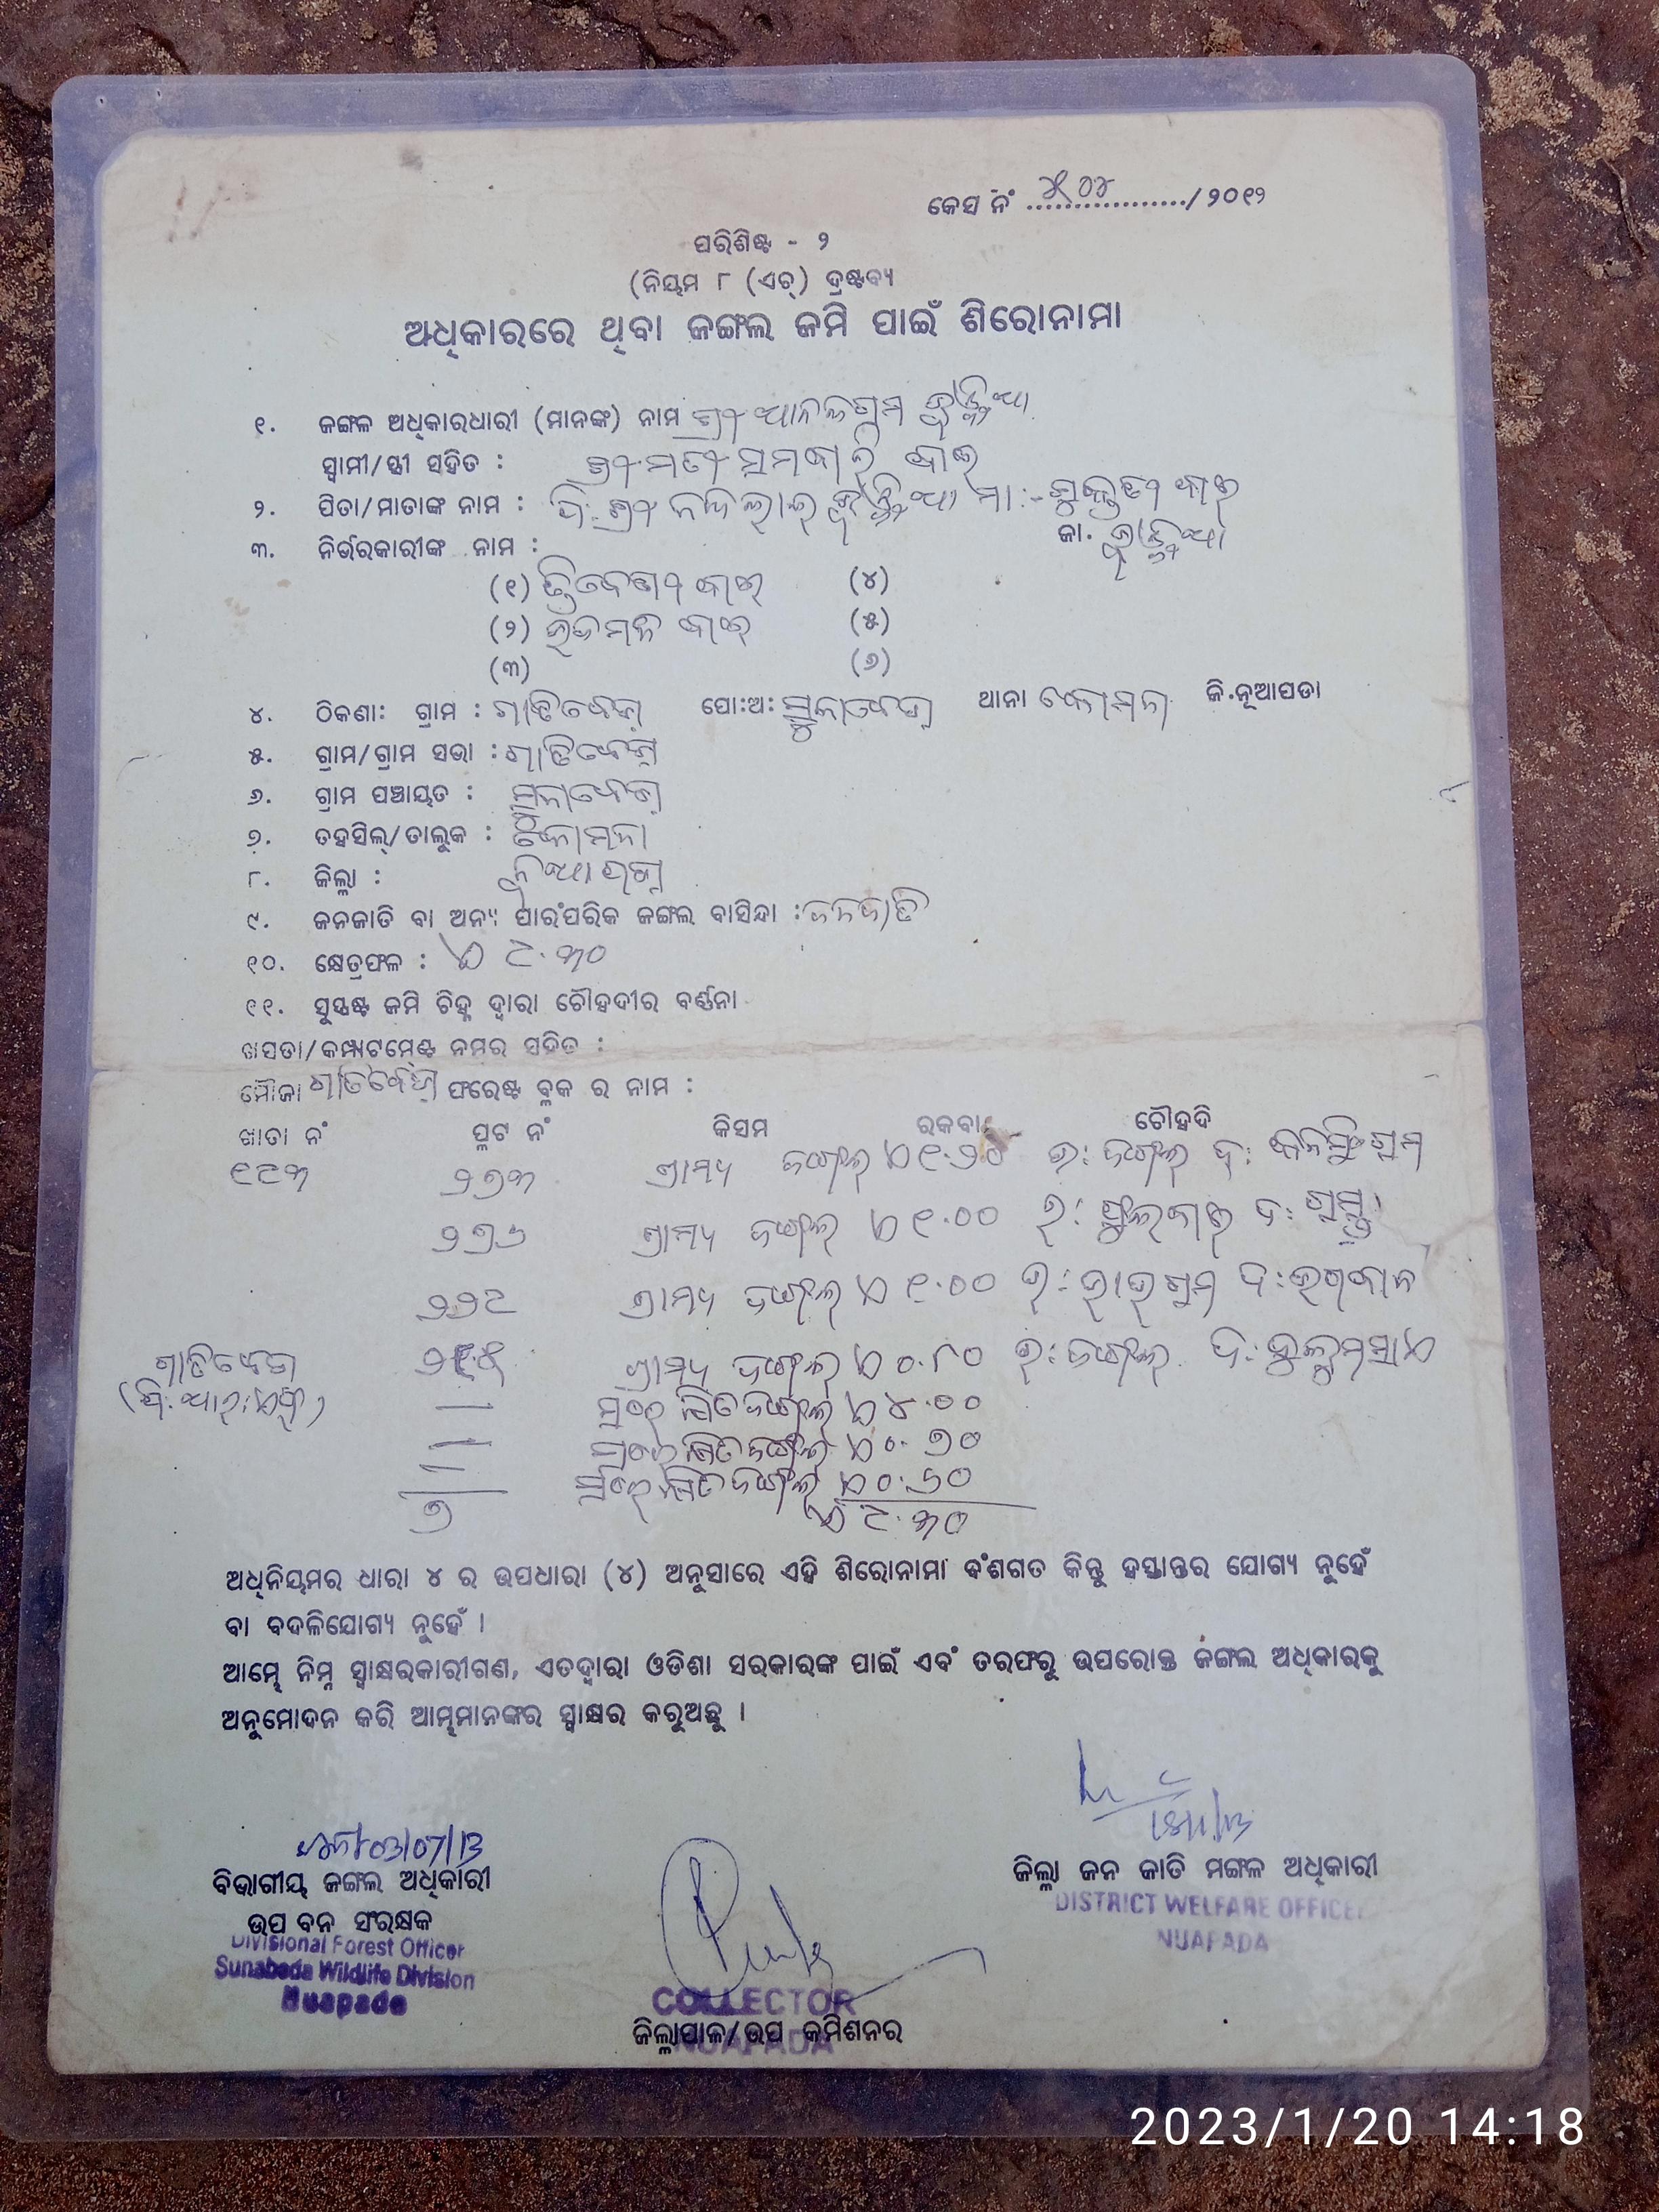 କେସ ନଂ ୪୧୦୪ /୨୦୧୨
ପରିଶିଷ୍ଟ - ୨
(ନିୟମ ୮ (ଏଚ୍) ଦ୍ରଷ୍ଟବ୍ୟ
ଅଧିକାରରେ ଥିବା ଜଙ୍ଗଲ ଜମି ପାଇଁ ଶିରୋନାମା
୧. ଜଙ୍ଗଳ ଅଧିକାରଧାରୀ (ମାନଙ୍କ) ନାମ ଶ୍ରୀ
ସ୍ୱାମୀ/ସ୍ତ୍ରୀ ସହିତ : ଶ୍ରୀମତୀ ବାଇ
୨. ପିତା/ମାତାଙ୍କ ନାମ : ପି: ଶ୍ରୀ ମା:- ବାଇ
୩. ନିର୍ଭରକାରୀଙ୍କ ନାମ : ଜା.
(୧) ତ୍ରିବେଣୀ ବାଇ (୪)
(୨) ବାଇ (୫)
(୩) (୬)
୪. ଠିକଣା: ଗ୍ରାମ : ଗାତିବେଡ଼ା ପୋ:ଅ: ସୁନାବେଡା ଥାନା କୋମନା ଜି.ନୂଆପଡା
୫. ଗ୍ରାମ/ଗ୍ରାମ ସଭା : ଗାତିବେଡ଼ା
୬. ଗ୍ରାମ ପଞ୍ଚାୟତ : ସୁନାବେଡ଼ା
୭. ତହସିଲ୍/ତାଲୁକ : କୋମନା
୮. ଜିଲ୍ଲା : ନୂଆପଡ଼ା
୯. ଜନଜାତି ବା ଅନ୍ୟ ପାରଂପରିକ ଜଙ୍ଗଲ ବାସିନ୍ଦା : ଜନଜାତି
୧୦. କ୍ଷେତ୍ରଫଳ : ଏ ୯.୩୦
୧୧. ସୁସ୍ପଷ୍ଟ ଜମି ଚିହ୍ନ ଦ୍ୱାରା ଚୌହଦୀର ବର୍ଣ୍ଣନା
ଖସଡା/କମ୍ପାଟମେଣ୍ଟ ନମ୍ବର ସହିତ :
ମୌଜା ଗାତିବେଡ଼ା ଫରେଷ୍ଟ ବ୍ଲକ ର ନାମ :
ଖାତା ନଂ ପ୍ଲଟ ନଂ କିସମ ରକବା ଚୌହଦି
୧୯୩ ୨୭୩ ଗ୍ରାମ୍ୟ ଜଙ୍ଗଲ ଏ ୧.୨୦ ଉ: ଜଙ୍ଗଲ ଦ:
୨୭୬ ଗ୍ରାମ୍ୟ ଜଙ୍ଗଲ ଏ ୧.୦୦ ଉ: ଫୁଲବାଇ ଦ:
୨୨୯ ଗ୍ରାମ୍ୟ ଜଙ୍ଗଲ ଏ ୧.୦୦ ଉ: ଦ:
ଗାତିବେଡା ଗ୍ରାମ୍ୟ ଜଙ୍ଗଲ ଏ ୦.୮୦ ଉ: ଜଙ୍ଗଲ ଦ:
(ପି:ଆର:ଏଫ୍) — ସଂରକ୍ଷିତ ଜଙ୍ଗଲ ଏ ୪.୦୦
— ସଂରକ୍ଷିତ ଜଙ୍ଗଲ ଏ ୦.୭୦
— ସଂରକ୍ଷିତ ଜଙ୍ଗଲ ଏ ୦.୬୦
୭ ଏ ୯.୩୦
ଅଧିନିୟମର ଧାରା ୪ ର ଉପଧାରା (୪) ଅନୁସାରେ ଏହି ଶିରୋନାମା ବଂଶଗତ କିନ୍ତୁ ହସ୍ତାନ୍ତର ଯୋଗ୍ୟ ନୁହେଁ
ବା ବଦଳିଯୋଗ୍ୟ ନୁହେଁ ।
ଆମ୍ଭେ ନିମ୍ନ ସ୍ୱାକ୍ଷରକାରୀଗଣ, ଏତଦ୍ୱାରା ଓଡିଶା ସରକାରଙ୍କ ପାଇଁ ଏବଂ ତରଫରୁ ଉପରୋକ୍ତ ଜଙ୍ଗଲ ଅଧିକାରକୁ
ଅନୁମୋଦନ କରି ଆମ୍ଭମାନଙ୍କର ସ୍ୱାକ୍ଷର କରୁଅଛୁ ।
03/07/13
ବିଭାଗୀୟ ଜଙ୍ଗଲ ଅଧିକାରୀ
ଉପ ବନ ସଂରକ୍ଷକ
Divisional Forest Officer
Sunabeda Wildlife Division
Nuapada
COLLECTOR
ଜିଲ୍ଲାପାଳ/ଉପ କମିଶନର
NUAPADA
ଜିଲ୍ଲା ଜନ ଜାତି ମଙ୍ଗଳ ଅଧିକାରୀ
DISTRICT WELFARE OFFICER
NUAPADA
2023/1/20 14:18